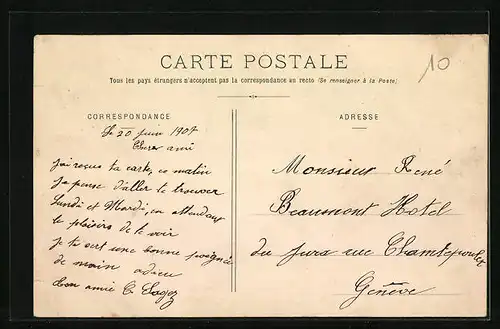 CARTE POSTALE
Tous les pays étrangers n'acceptent pas la correspondance au recto (Se renseigner à la Poste)
10
CORRESPONDANCE
Le 20 juin 1907
Cher ami
J'ai reçus ta carte, ce matin
Je pense d'aller te trouver
Lundi et Mardi, en attendant
le plaisirs de te voir
je te sert une bonne poignée
de main adieu
ton amie C.
ADRESSE
Monsieur René
Beaumont Hotel
du Jura rue Chantepoulet
Genève